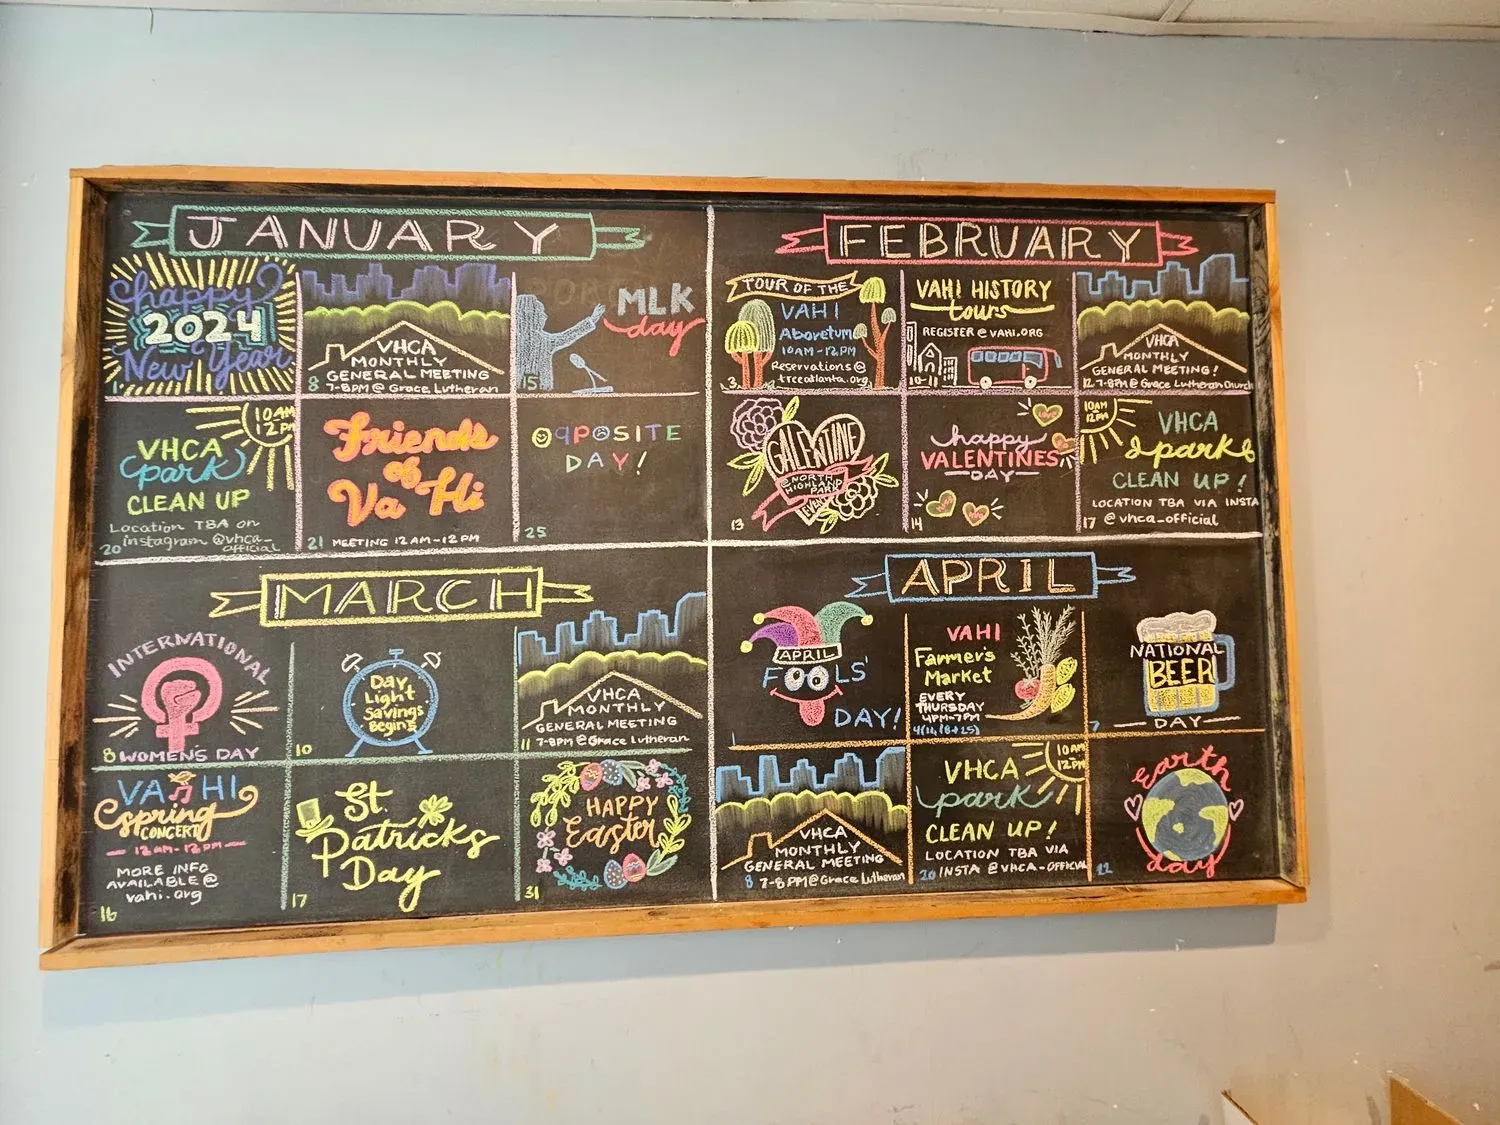 JANUARY
happy
2024
New Year
1
VHCA
MONTHLY
GENERAL MEETING
8 7-8PM @ Grace Lutheran
MLK
day
15
10AM
12PM
VHCA
park
CLEAN UP
Location TBA on
instagram @vhca_
official
20
Friends
of
Va-Hi
21 MEETING 12AM-12PM
OPPOSITE
DAY!
25
FEBRUARY
TOUR OF THE
VAHI
Aboretum
10AM-12PM
Reservations @
treeatlanta.org
3
VAHI HISTORY
tours
REGISTER @ VAHI.ORG
10-11
VHCA
MONTHLY
GENERAL MEETING!
12 7-8PM @ Grace Lutheran Church
GALENTINE
@ NORTH
HIGHLAND
PARK
EVENT
13
happy
VALENTINES
DAY
14
10AM
12PM
VHCA
park
CLEAN UP!
LOCATION TBA VIA INSTA
17 @vhca_official
MARCH
INTERNATIONAL
8 WOMEN'S DAY
Day
Light
Savings
Begins
10
VHCA
MONTHLY
GENERAL MEETING
11 7-8PM @ Grace Lutheran
VA HI
Spring
CONCERT
12AM-12PM
MORE INFO
AVAILABLE @
vahi.org
16
St.
Patricks
Day
17
HAPPY
Easter
31
APRIL
APRIL
FOOLS'
DAY!
VAHI
Farmer's
Market
EVERY
THURSDAY
4PM-7PM
4(11,18+25)
NATIONAL
BEER
DAY
7
VHCA
MONTHLY
GENERAL MEETING
8 7-8PM @ Grace Lutheran
10AM
12PM
VHCA
park
CLEAN UP!
LOCATION TBA VIA
20 INSTA @VHCA_OFFICIAL
earth
day
22